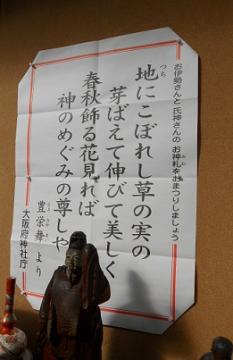 お伊勢さんと氏神さんのお神札をおまつりしましょう
地にこぼれし草の実の
芽ばえて伸びて美しく
春秋飾る花見れば
神のめぐみの尊しや
豊栄舞より
大阪府神社庁